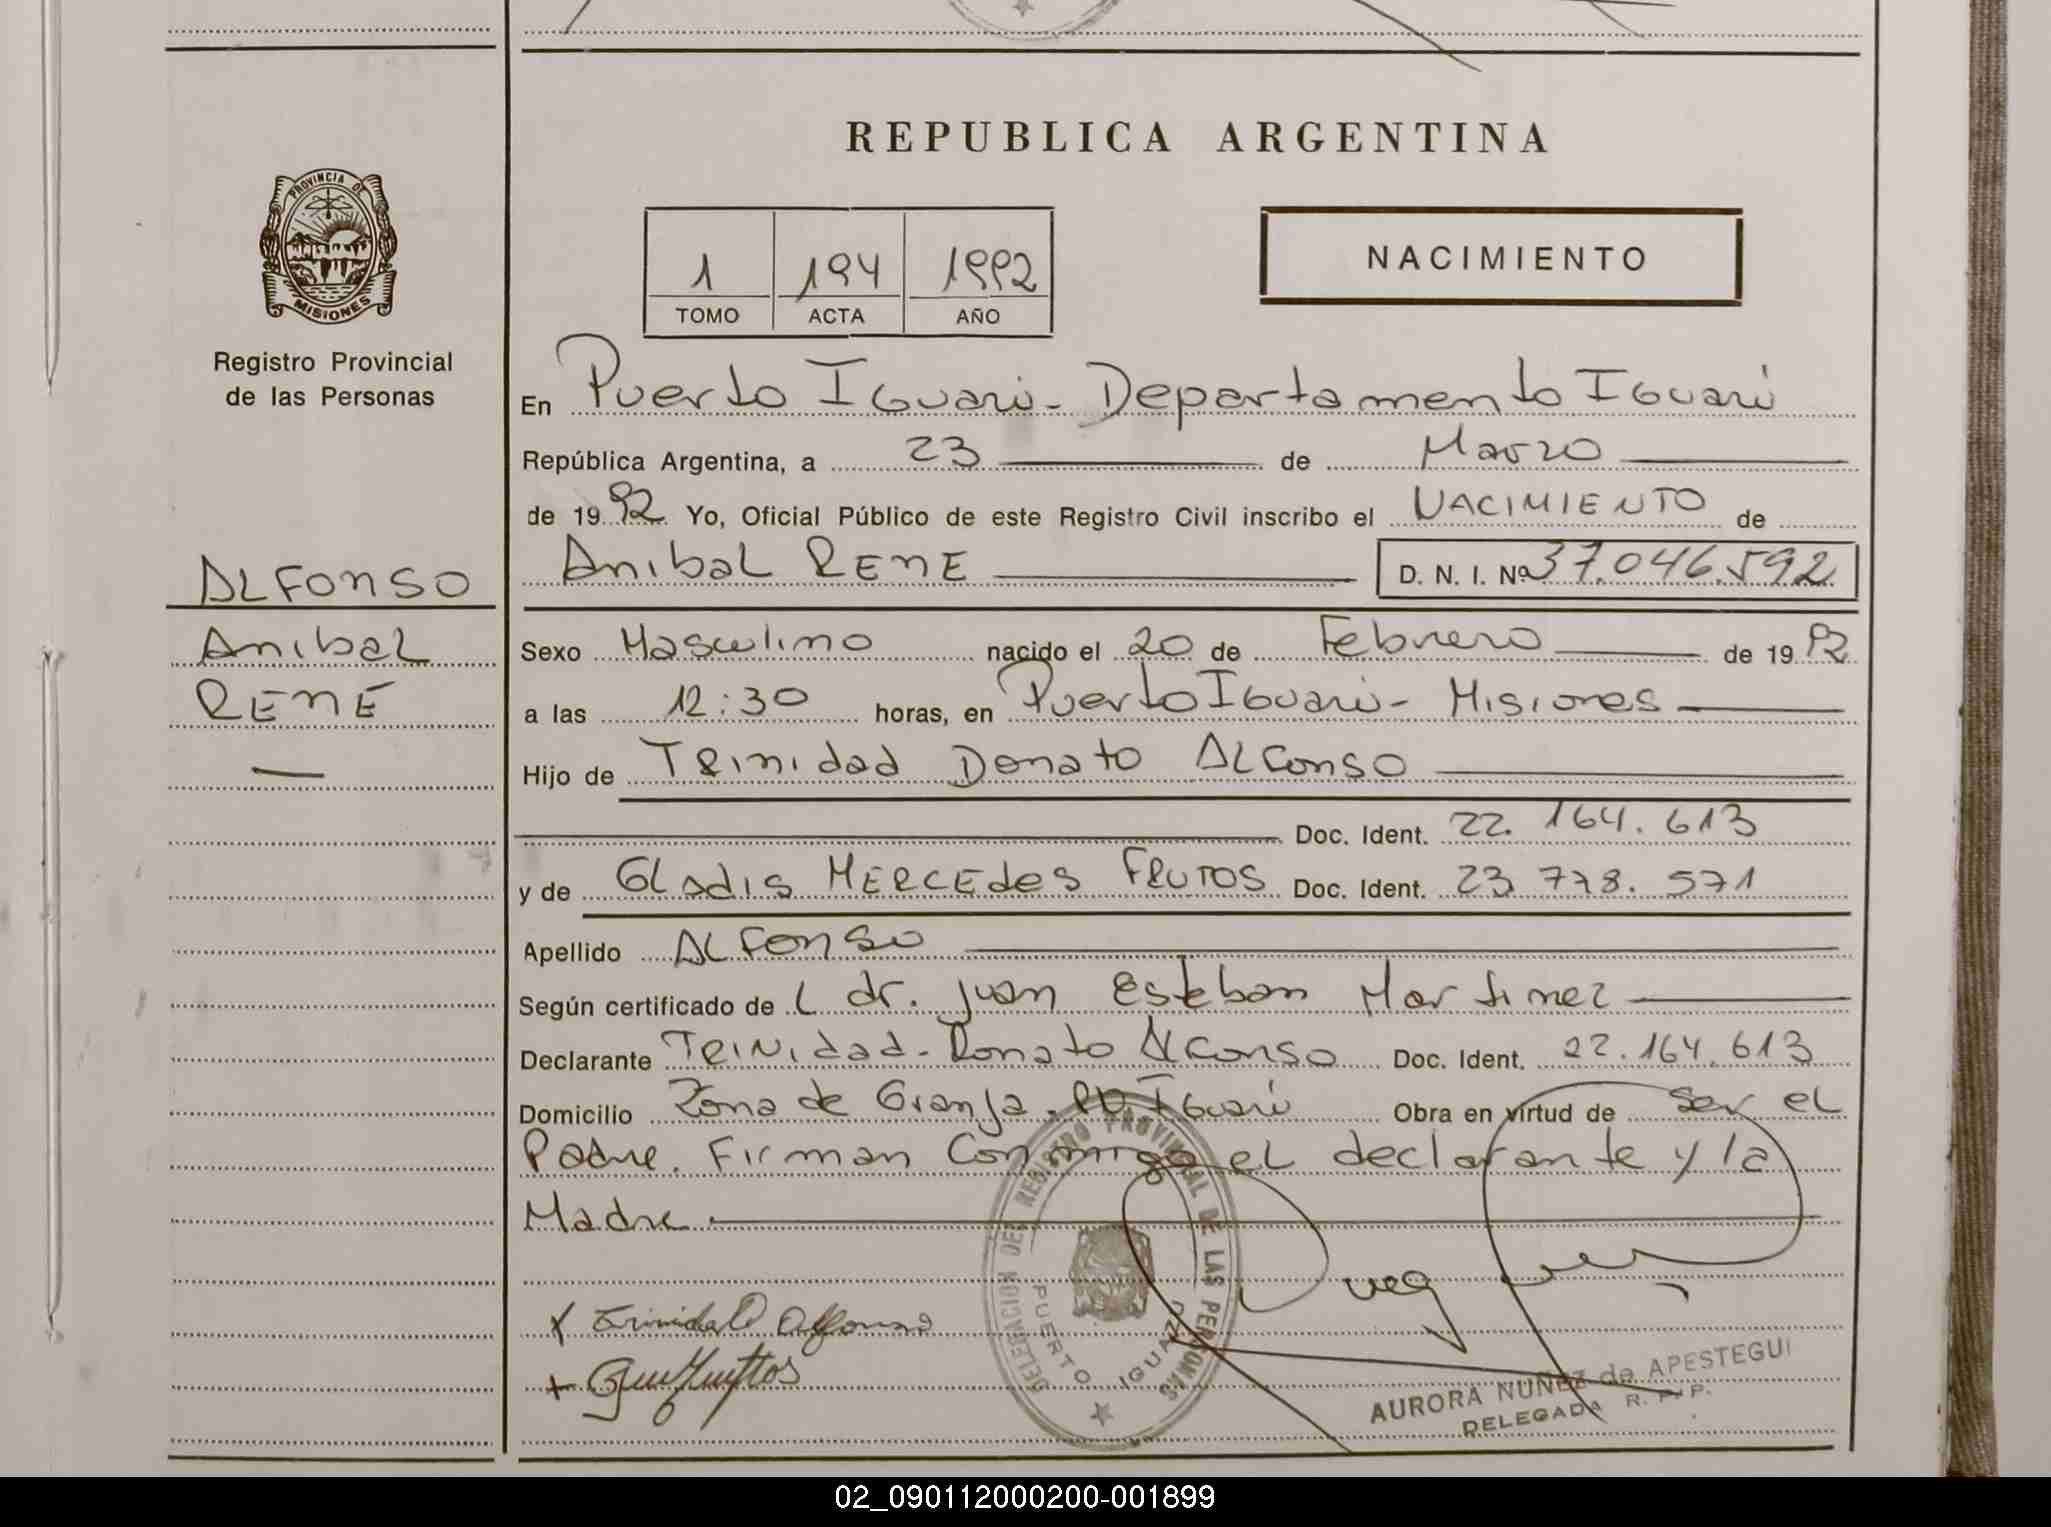 REPUBLICA ARGENTINA
PROVINCIA DE
MISIONES
Registro Provincial
de las Personas
1 194 1992
TOMO ACTA AÑO
NACIMIENTO
En Puerto Iguazú - Departamento Iguazú
República Argentina, a 23 de Marzo
de 1992 Yo, Oficial Público de este Registro Civil inscribo el NACIMIENTO de
ALFONSO
Anibal RENE D. N. I. Nº 37.046.592
Anibal
RENE
Sexo Masculino nacido el 20 de Febrero de 1992
a las 12:30 horas, en Puerto Iguazú - Misiones
Hijo de Trinidad Donato Alfonso
Doc. Ident. 22.164.613
y de Gladis MERCEDES FRUTOS Doc. Ident. 23.778.571
Apellido ALFONSO
Según certificado de L dr. Juan Esteban Martinez
Declarante Trinidad - Donato Alfonso Doc. Ident. 22.164.613
Domicilio Zona de Granja. Pto Iguazú Obra en virtud de Ser el
Padre. Firman Conmigo el declarante y la
Madre.
x Trinidad D Alfonso
DELEGACION DEL REGISTRO PROVINCIAL DE LAS PERSONAS
PUERTO IGUAZU
AURORA NUÑEZ de APESTEGUI
DELEGADA R. P. P.
02_090112000200-001899